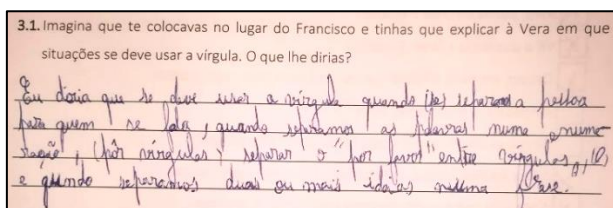 3.1. Imagina que te colocavas no lugar do Francisco e tinhas que explicar à Vera em que
situações se deve usar a vírgula. O que lhe dirias?
Eu diria que se deve usar a vírgula quando se separa a pessoa
para quem se fala, quando separamos as palavras numa enume-
ração, (pôr vírgulas) separar o "por favor" entre vírgulas,
e quando separamos duas ou mais ideias numa frase.